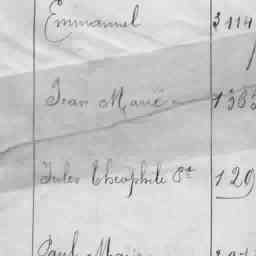 Emmanuel 3114
Jean Marie
Jules Théophile Bte 129
Paul Marie